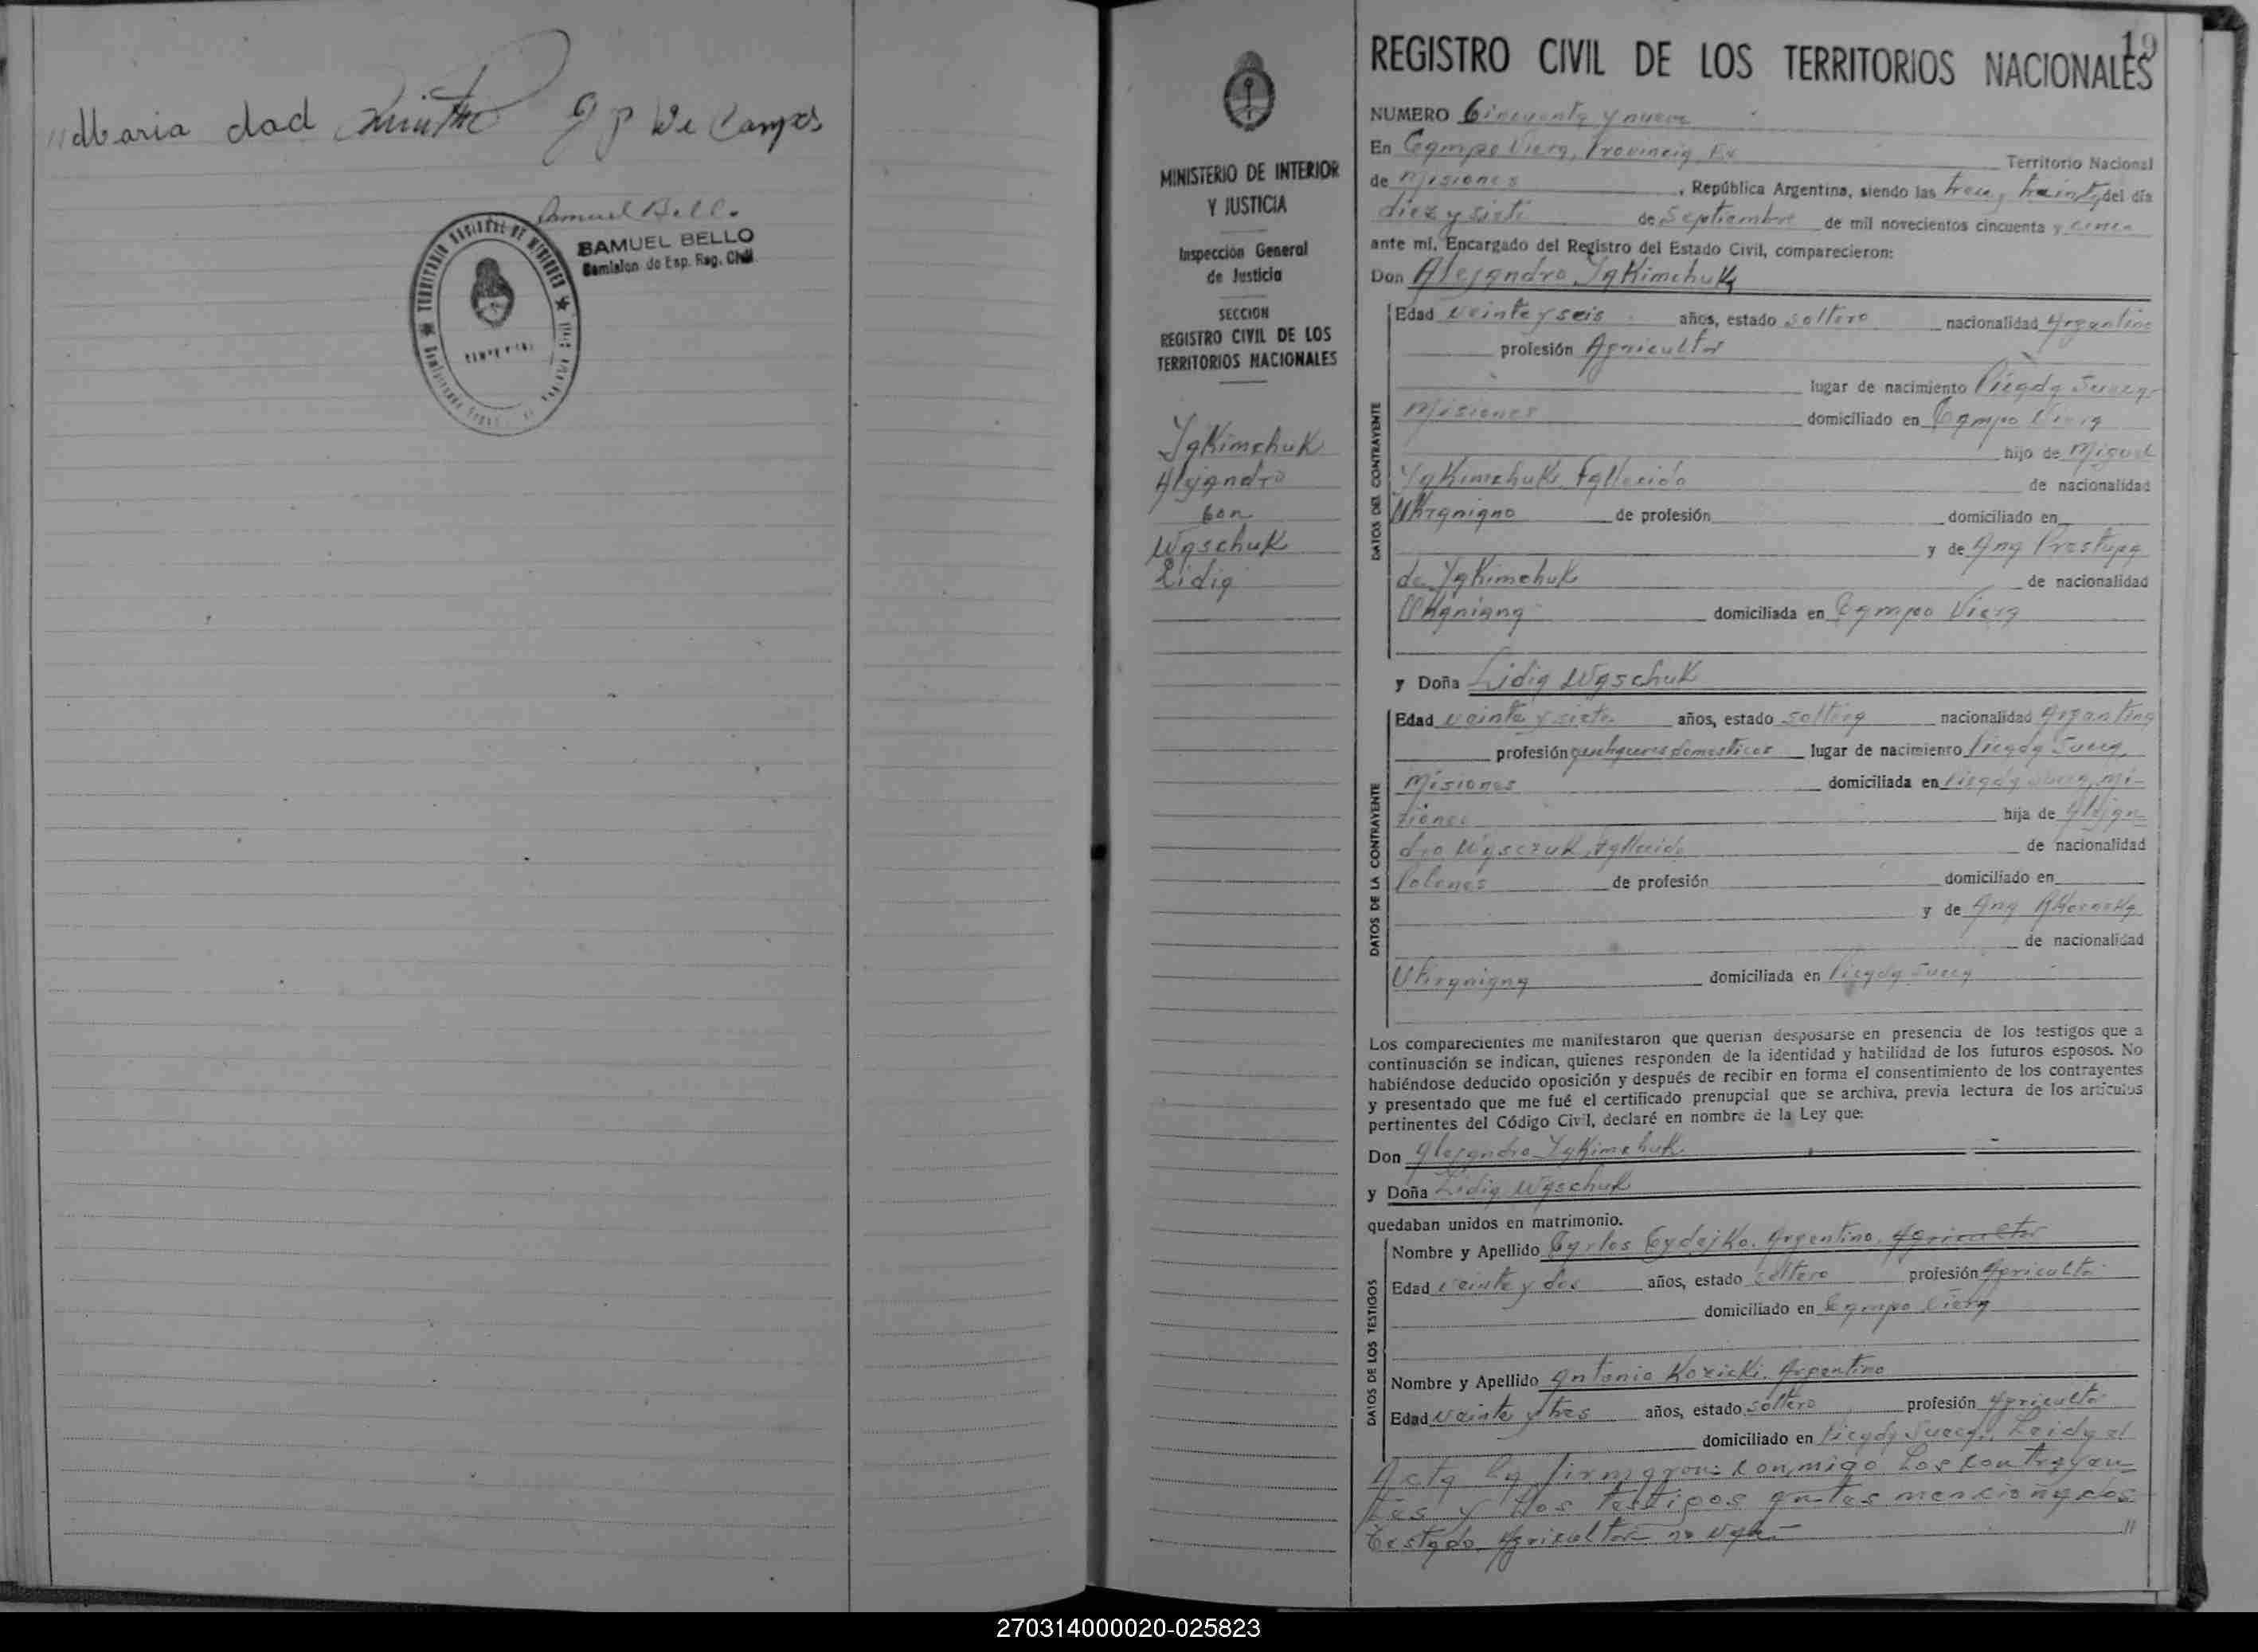 Maria dad
SAMUEL BELLO
Comision de Esp. Reg. Civil
TERRITORIO NACIONAL DE MISIONES
19
MINISTERIO DE INTERIOR
Y JUSTICIA
Inspección General
de Justicia
SECCION
REGISTRO CIVIL DE LOS
TERRITORIOS NACIONALES
Yakimchuk
Alejandro
Con
Waschuk
Lidia
REGISTRO CIVIL DE LOS TERRITORIOS NACIONALES
NUMERO Cincuenta y nueve
En Campo Viera, Provincia Ex Territorio Nacional
de Misiones, República Argentina, siendo las trece, treinta del día
diez y siete de Septiembre de mil novecientos cincuenta y cinco
ante mí, Encargado del Registro del Estado Civil, comparecieron:
Don Alejandro Yakimchuk
DATOS DEL CONTRAYENTE
Edad veinte y seis años, estado soltero nacionalidad Argentino
profesión Agricultor
lugar de nacimiento Picada Sueca
Misiones domiciliado en Campo Viera
hijo de Miguel
Yakimchuk Fallecido de nacionalidad
Ukraniano de profesión domiciliado en
y de Ana Prestupa
de Yakimchuk de nacionalidad
Ukraniana domiciliada en Campo Viera
y Doña Lidia Waschuk
DATOS DE LA CONTRAYENTE
Edad veinte y siete años, estado soltera nacionalidad Argentina
profesión quehaceres domesticos lugar de nacimiento Picada Sueca
Misiones domiciliada en Picada Sueca, Mi-
siones hija de Alejan-
dro Wasczuk, Fallecido de nacionalidad
Polones de profesión domiciliado en
y de Ana
de nacionalidad
Ukraniana domiciliada en Picada Sueca
Los comparecientes me manifestaron que querían desposarse en presencia de los testigos que a
continuación se indican, quienes responden de la identidad y habilidad de los futuros esposos. No
habiéndose deducido oposición y después de recibir en forma el consentimiento de los contrayentes
y presentado que me fué el certificado prenupcial que se archiva, previa lectura de los artículos
pertinentes del Código Civil, declaré en nombre de la Ley que:
Don Alejandro Yakimchuk
y Doña Lidia Waschuk
quedaban unidos en matrimonio.
DATOS DE LOS TESTIGOS
Nombre y Apellido Carlos Cydejko. Argentino. Agricultor
Edad veinte y dos años, estado soltero profesión Agricultor
domiciliado en Campo Viera
Nombre y Apellido Antonio Kozicki. Argentino
Edad veinte y tres años, estado soltero profesión Agricultor
domiciliado en Picada Sueca. Leida el
Acta la firmaron conmigo los contrayen-
tes y los testigos antes mencionados
Testado, Agricultor no vale.- //
270314000020-025823